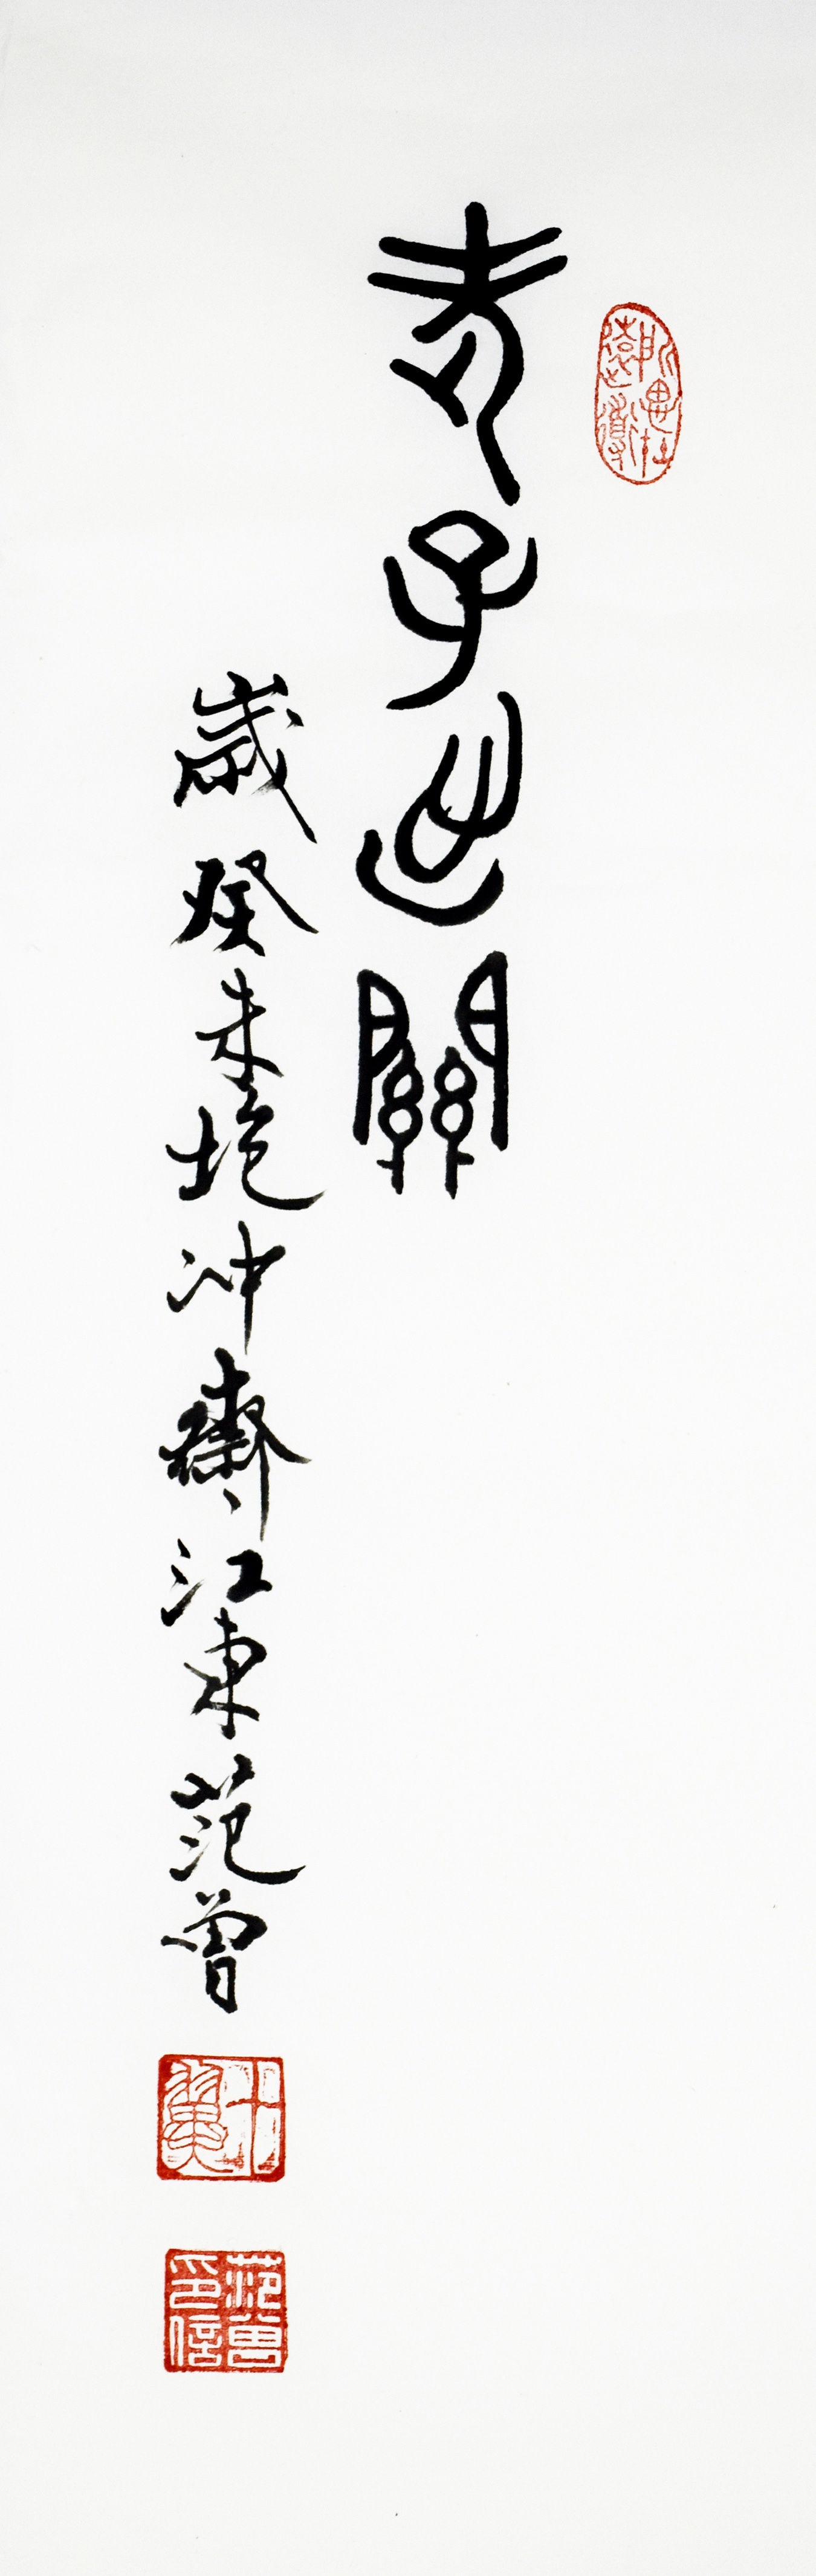 老子出關
歲癸未抱冲齋江東范曾
十翼
范曾印信